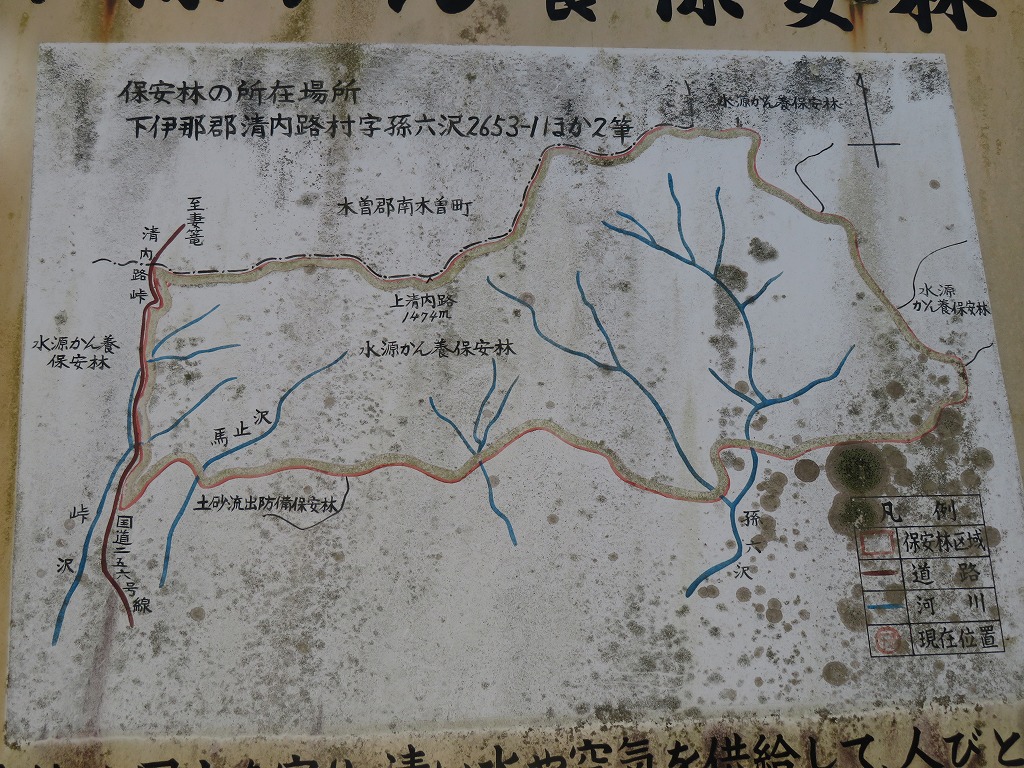 養保安林
保安林の所在場所
下伊那郡清内路村字孫六沢2653-1ほか2筆
水源かん養保安林
木曽郡南木曽町
至妻篭
清内路峠
上清内路
1474m
水源
かん養保安林
水源かん養
保安林
水源かん養保安林
馬止沢
土砂流出防備保安林
峠沢
国道二五六号線
孫六沢
凡例
保安林区域
道路
河川
現在位置
清い水や空気を供給して、人びと